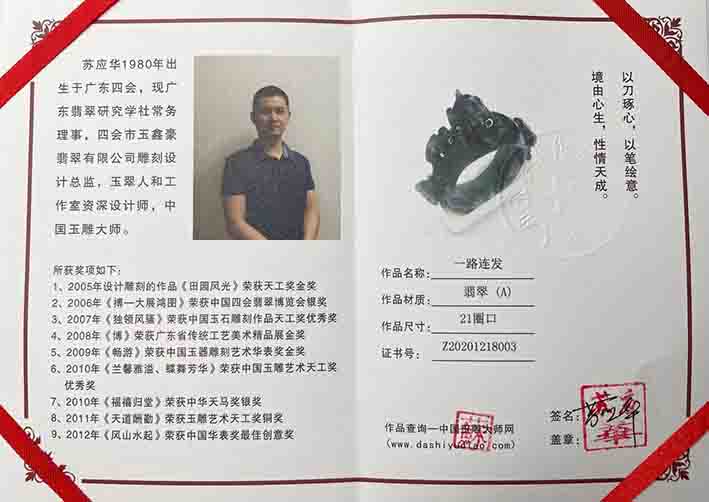 苏应华1980年出
生于广东四会，现广
东翡翠研究学社常务
理事，四会市玉鑫豪
翡翠有限公司雕刻设
计总监，玉翠人和工
作室资深设计师，中
国玉雕大师。
所获奖项如下：
1、2005年设计雕刻的作品《田园风光》荣获天工奖金奖
2、2006年《搏一大展鸿图》荣获中国四会翡翠博览会银奖
3、2007年《独领风骚》荣获中国玉石雕刻作品天工奖优秀奖
4、2008年《博》荣获广东省传统工艺美术精品展金奖
5、2009年《畅游》荣获中国玉器雕刻艺术华表奖金奖
6、2010年《兰馨雅溢、蝶舞芳华》荣获中国玉雕艺术天工奖
优秀奖
7、2010年《福禧归堂》荣获中华天马奖银奖
8、2011年《天道酬勤》荣获玉雕艺术天工奖铜奖
9、2012年《风山水起》荣获中国华表奖最佳创意奖
以刀琢心，以笔绘意。
境由心生，性情天成。
作品名称：一路连发
作品材质：翡翠（A）
作品尺寸：21圈口
证书号：Z20201218003
签名：苏应华
盖章：
蘇
華
作品查询—中国玉雕大师网
（www.dashiyudiao.com）
蘇